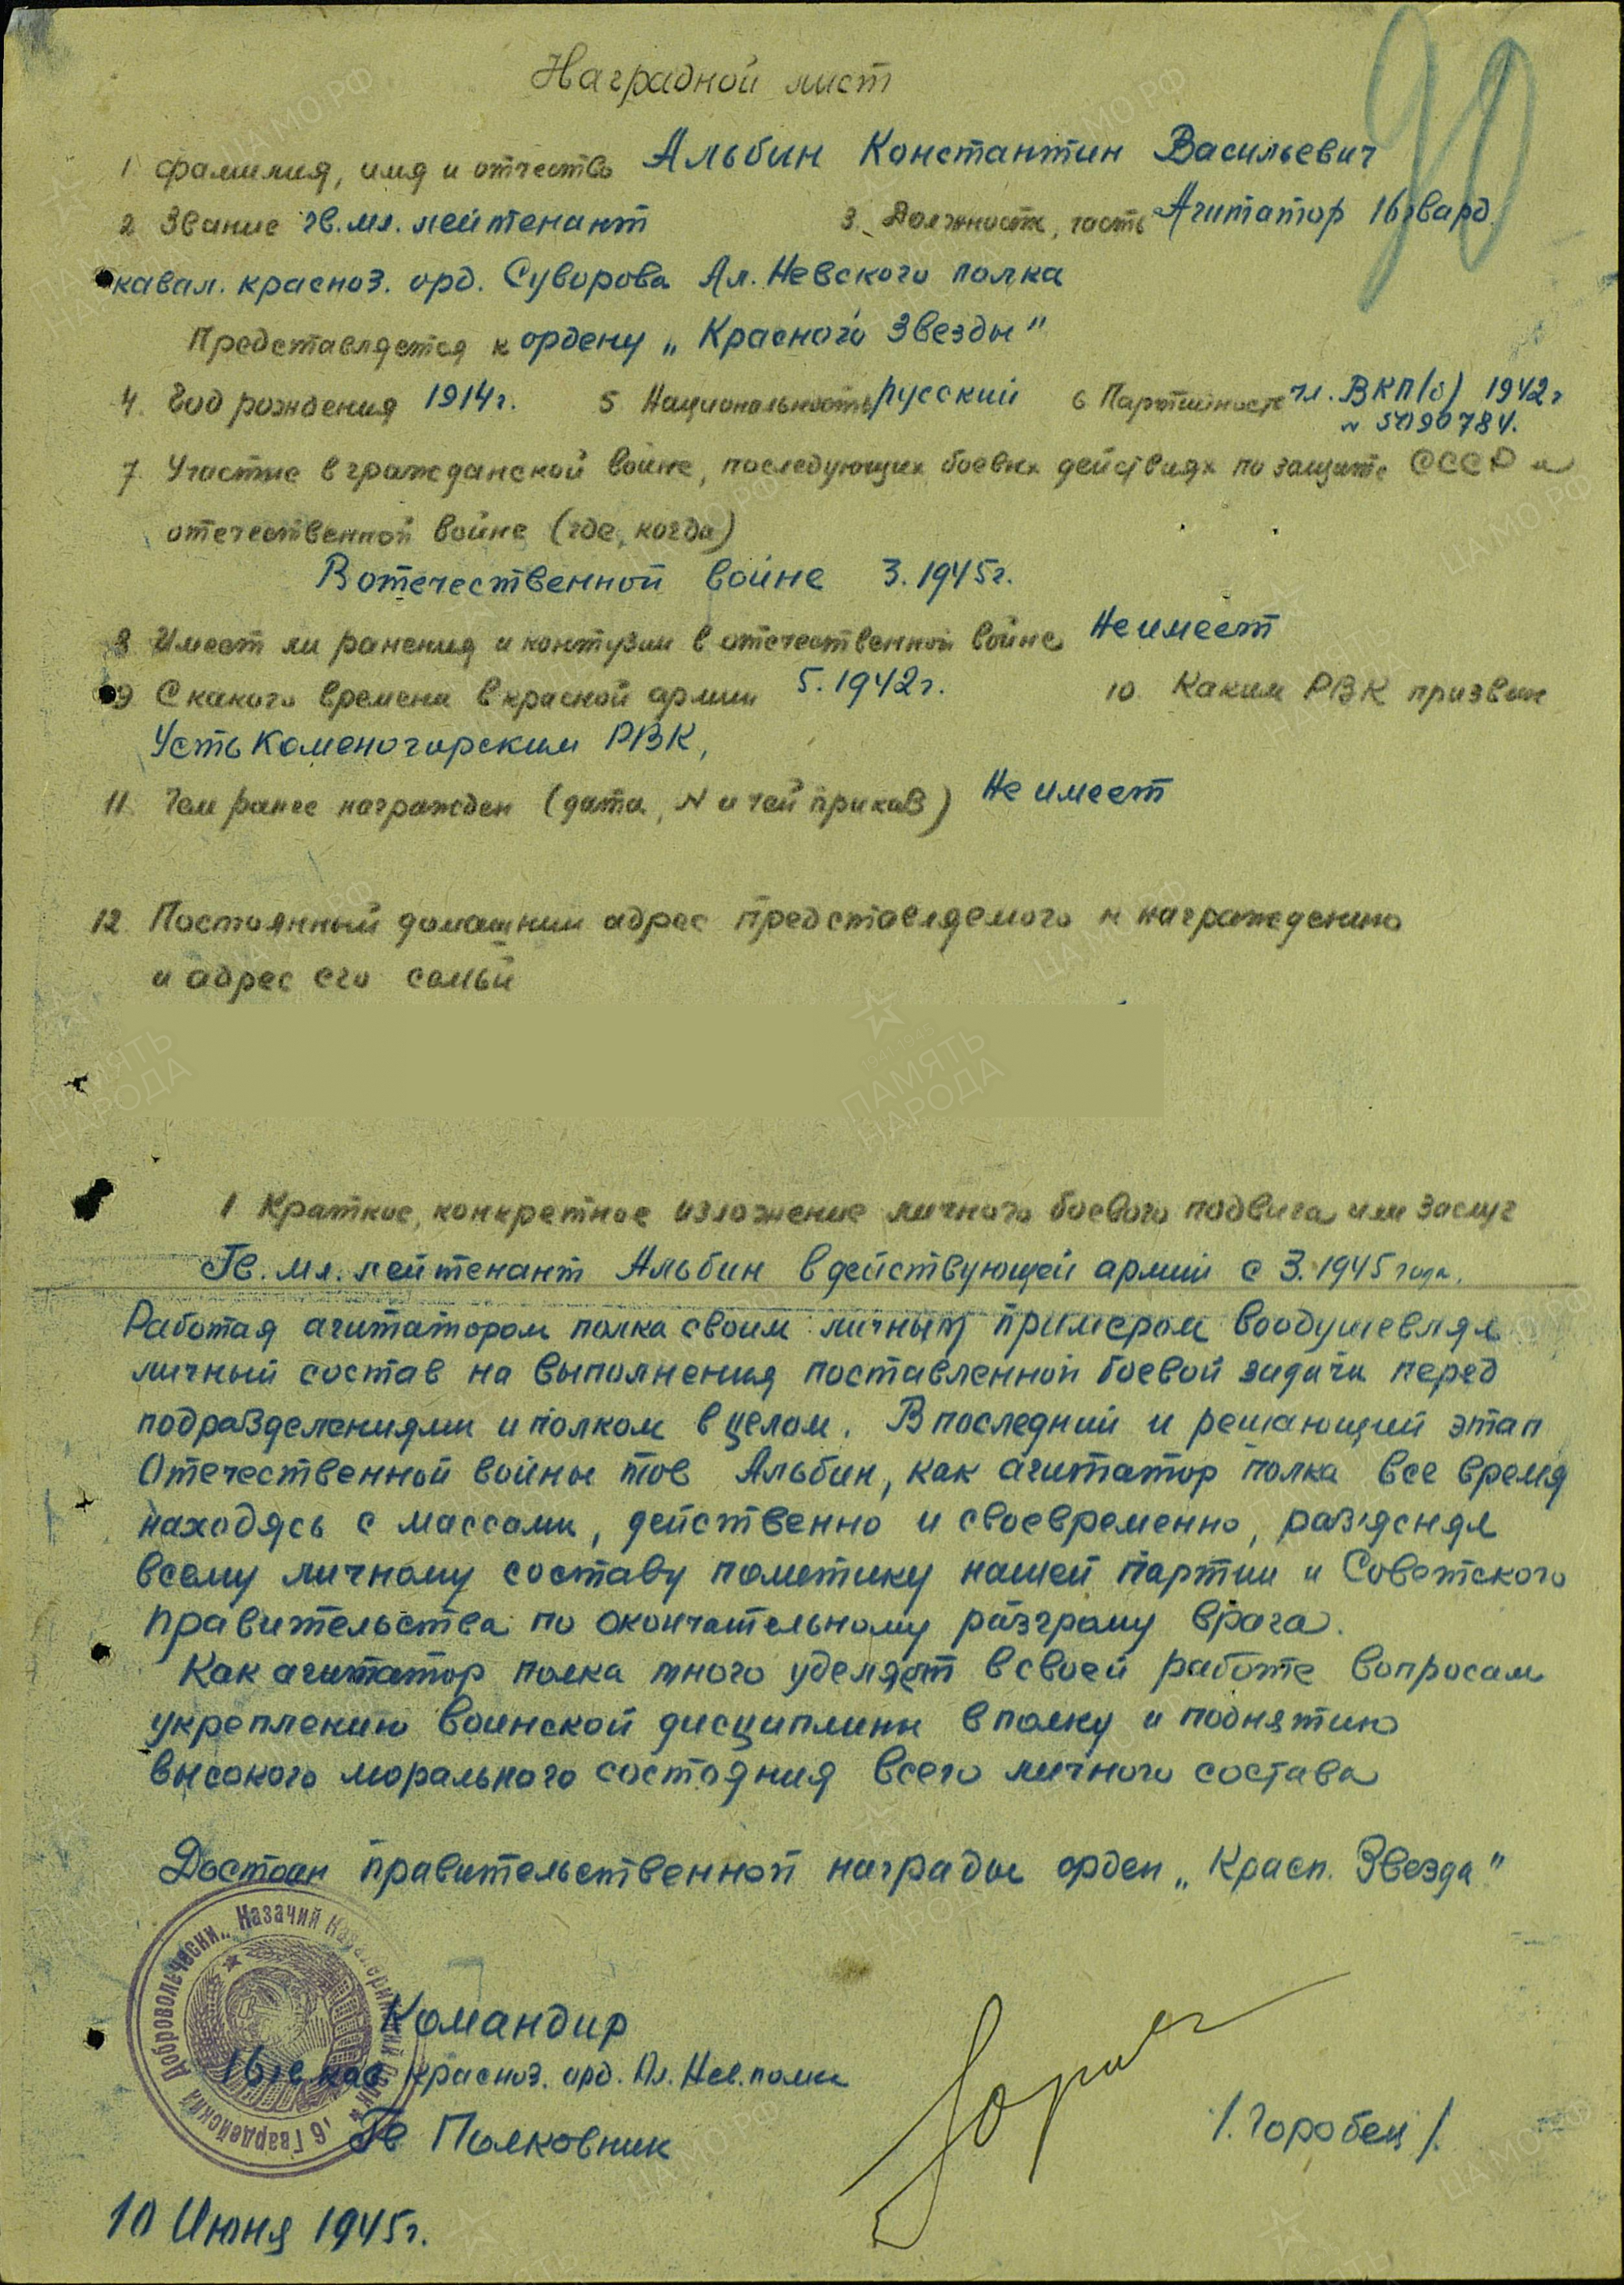 90
Наградной лист
1 фамилия, имя и отчество Альбин Константин Васильевич
2 Звание гв. мл. лейтенант 3. Должность, часть Агитатор 16 гвард.
кавал. красноз. орд. Суворова Ал. Невского полка
Представляется к ордену „Красного Звезды"
4. Год рождения 1914г. 5 Национальность русский 6 Партийность чл. ВКП(б) 1942г
7. Участие в гражданской войне, последующих боевых действиях по защите СССР и
отечественной войне (где, когда)
В отечественной войне 3.1945г.
8 Имеет ли ранения и контузии в отечественной войне Не имеет
9 С какого времени в красной армии 5.1942г. 10. Каким РВК призван
Усть Каменогорским РВК,
11. Чем ранее награжден (дата, N и чей приказ) Не имеет
12. Постоянный домашний адрес представляемого к награждению
и адрес его семьи
1 Краткое, конкретное изложение личного боевого подвига или заслуг
Гв. мл. лейтенант Альбин в действующей армии с 3.1945 года.
Работая агитатором полка своим личным примером воодушевлял
личный состав на выполнения поставленной боевой задачи перед
подразделениями и полком в целом. В последний и решающий этап
Отечественной войны тов Альбин, как агитатор полка все время
находясь с массами, действенно и своевременно, раз'яснял
всему личному составу политику нашей партии и Советского
правительства по окончательному разгрому врага.
Как агитатор полка много уделяет в своей работе вопросам
укреплению воинской дисциплины в полку и поднятию
высокого морального состояния всего личного состава
Достоин правительственной награды орден „Красн. Звезда"
Командир
16 гв кав красноз. орд. Ал. Нев. полка
Гв Полковник /. Горобец /.
10 Июня 1945г.
16 Гвардейский Добровольческий Казачий Кавалерийский Полк
ПАМЯТЬ НАРОДА
ЦАМО.РФ